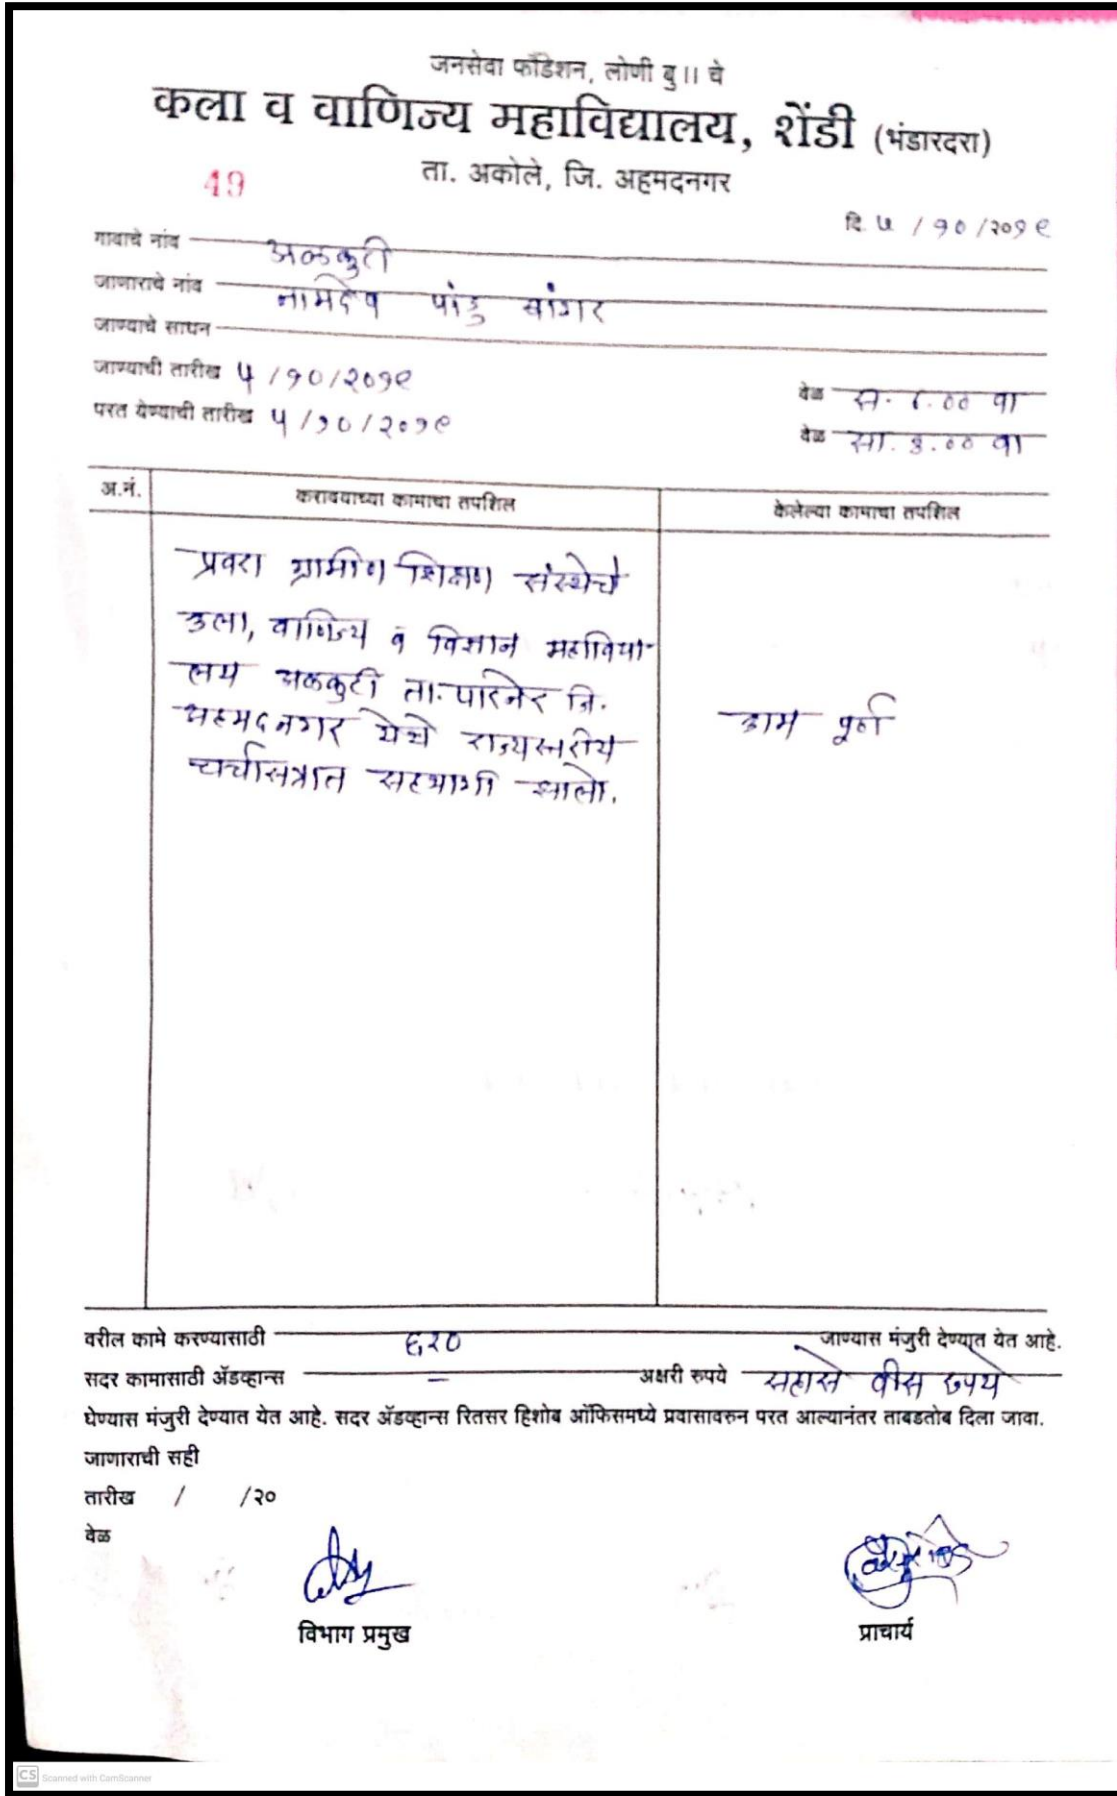 जनसेवा फौंडेशन, लोणी बु।। चे
कला व वाणिज्य महाविद्यालय, शेंडी (भंडारदरा)
49 ता. अकोले, जि. अहमदनगर
दि. ५ / १० / २०१९
गावाचे नांव अळकुटी
जाणाराचे नांव नामदेव पांडु बांगर
जाण्याचे साधन
जाण्याची तारीख ५ / १० / २०१९ वेळ स. ८.०० वा
परत येण्याची तारीख ५ / १० / २०१९ वेळ सा. ३.०० वा
अ.नं. करावयाच्या कामाचा तपशिल केलेल्या कामाचा तपशिल
प्रवरा ग्रामीण शिक्षण संस्थेचे
कला, वाणिज्य व विज्ञान महाविद्या-
लय अळकुटी ता. पारनेर जि.
अहमदनगर येथे राज्यस्तरीय काम पूर्ण
चर्चासत्रात सहभागी झालो.
वरील कामे करण्यासाठी ६२० जाण्यास मंजुरी देण्यात येत आहे.
सदर कामासाठी ॲडव्हान्स - अक्षरी रुपये सहाशे वीस रुपये
घेण्यास मंजुरी देण्यात येत आहे. सदर ॲडव्हान्स रितसर हिशोब ऑफिसमध्ये प्रवासावरुन परत आल्यानंतर ताबडतोब दिला जावा.
जाणाराची सही
तारीख / /२०
वेळ
विभाग प्रमुख प्राचार्य
CS Scanned with CamScanner